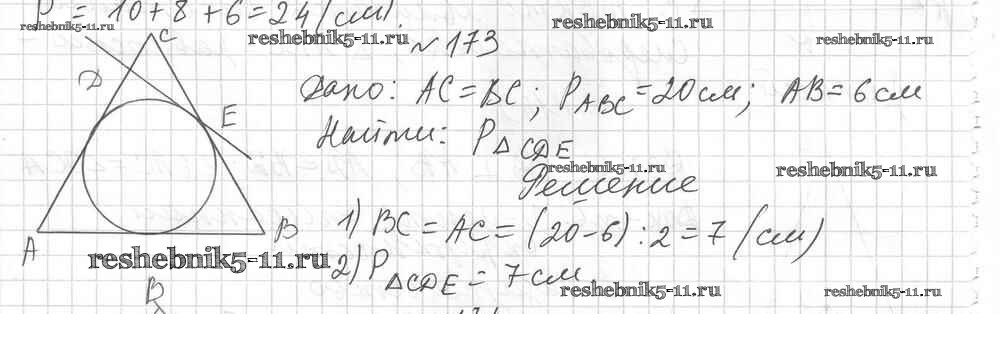 P = 10 + 8 + 6 = 24 (см).
reshebnik5-11.ru
reshebnik5-11.ru
reshebnik5-11.ru
reshebnik5-11.ru
№173
C
D
E
A
B
Дано: AC = BC; P ABC = 20 см; AB = 6 см
Найти: P △CDE
reshebnik5-11.ru
reshebnik5-11.ru
Решение
1) BC = AC = (20-6) : 2 = 7 (см)
reshebnik5-11.ru
2) P △CDE = 7 см.
reshebnik5-11.ru
reshebnik5-11.ru
B